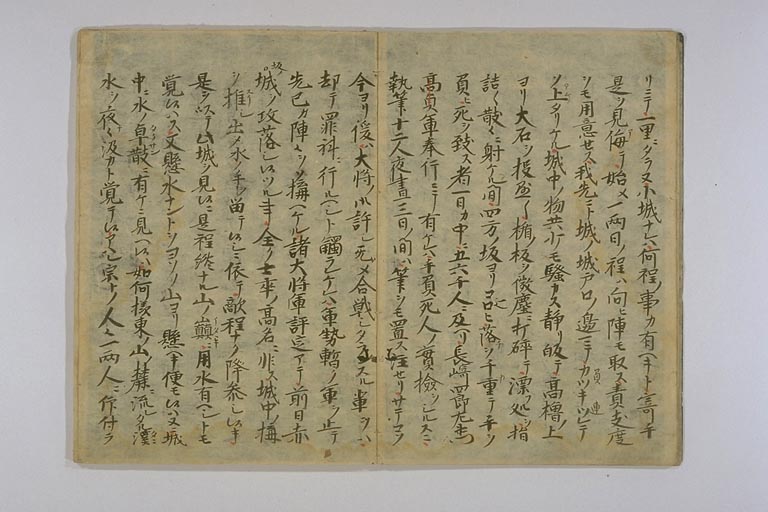 リニテ一里ダラヌ小城ナレハ何程ノ事カ有ヘキト寄手
是ヲ見侮テ始メ一両日ノ程ハ向ヒ陣モ取ス責支度
ソモ用意セス我先ニト城ノ城戸口ノ邊ニテカツキツレテ
ソ上タリケル城中ノ物共少モ騒カス静リ皈テ高櫓ノ上
ヨリ大石ヲ投懸〱楯板ヲ微塵ニ打砕テ漂フ処ヲ指
詰〱散〱ニ射ケル間四方ノ坂ヨリコロヒ落千重テ手ヲ
負ヒ死ヲ致ス者一日カ中ニ五六千人ニ及リ長崎四郎左
高貞軍奉行ニテ有ケレハ手負死人ノ實撿ヲシルスニ
執筆十二人夜晝三日ノ間ハ筆ヲモ置ス注セリサテコソ
今ヨリ後ハ大将ノ御許シ无メ合戦シタランスル輩ヲハ
却テ罪科ニ行ルヘシト觸ラレケレハ軍勢暫ノ軍ヲ止テ
先己カ陣々ヲソ搆ヘケル諸大将軍評定アテ前日赤
坂城ノ攻落シツル事全ク士卒ノ高名ニ非ス城中ノ搆
ヲ推シ出メ水ノ手ヲ留テ依テ敵程ナク降参シ事
是ヲ以テ此城ヲ見ルニ是程縱ナル山ノ巓ニ用水有ヘシトモ
覚ハス又懸水ナントヲヨソノ山ヨリ懸ヘキ便モハス城
中ニ水ノ卓散ニ有ケニ見ヘハ如何様東ノ山ノ麓ニ流タル溪
水ヲ夜々汲カト覚テアハレ宗トノ人々一両人ニ仰付ラ